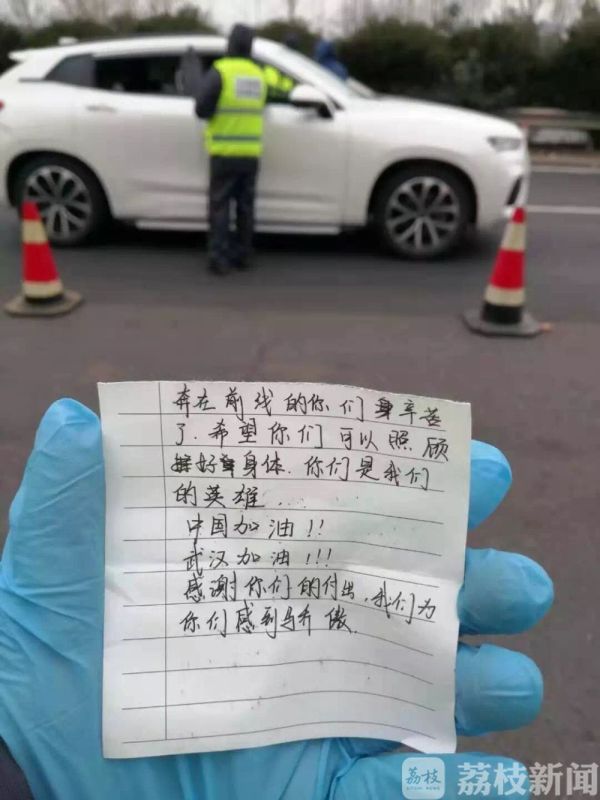 奔在前线的你们辛苦
了.希望你们可以照顾
好身体.你们是我们
的英雄...
中国加油!!
武汉加油!!!
感谢你们的付出,我们为
你们感到骄傲.
荔枝
荔枝新闻